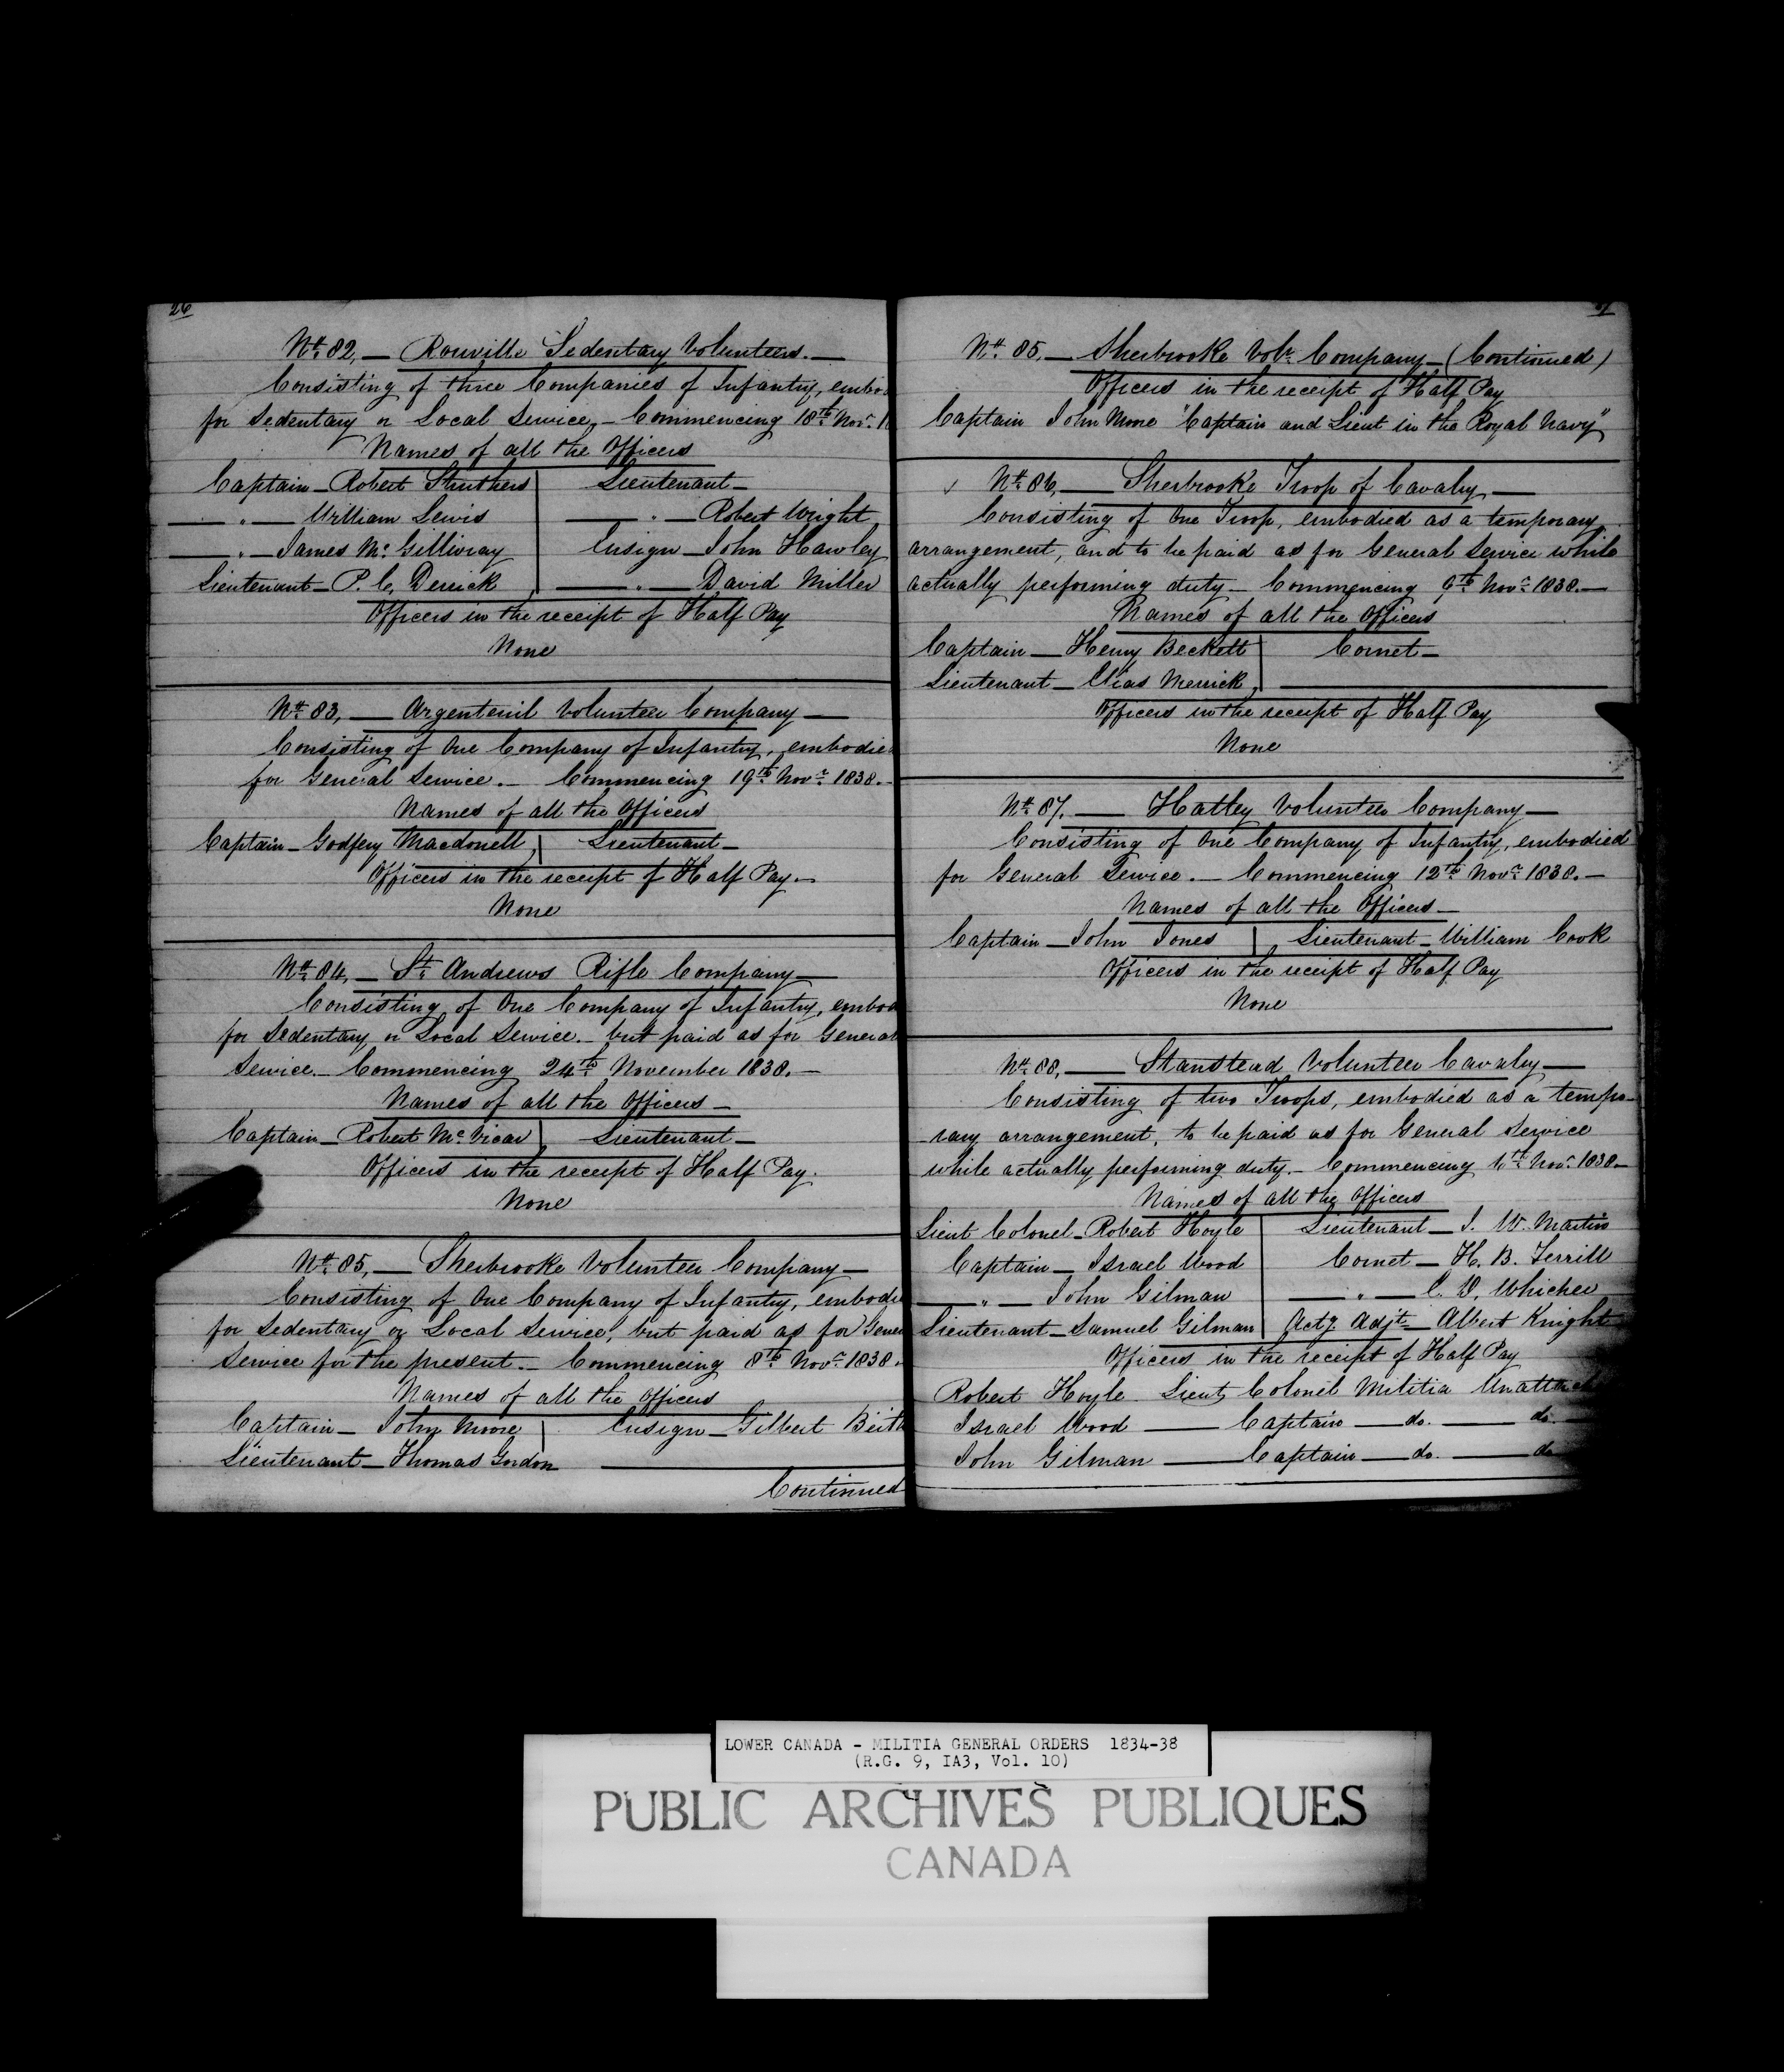 26
No. 82, — Rouville Sedentary Volunteers. —
Consisting of three Companies of Infantry, embod
for Sedentary or Local Service, — Commencing 18th Novr. 1
Names of all the Officers
Captain — Robert Struthers | Lieutenant —
— " — William Lewis | — " — Robert Wright
— " — James McGillivray | Ensign — John Hawley
Lieutenant — P. C. Derrick | — " — David Miller
Officers in the receipt of Half Pay
None
No. 83, — Argenteuil Volunteer Company —
Consisting of One Company of Infantry, embodie
for General Service. — Commencing 19th Novr. 1838. —
Names of all the Officers
Captain — Godfrey Macdonell, | Lieutenant —
Officers in the receipt of Half Pay. —
None
No. 84, — St. Andrews Rifle Company —
Consisting of One Company of Infantry, embod
for Sedentary or Local Service. — but paid as for General
Service. — Commencing 24th November 1838. —
Names of all the Officers —
Captain — Robert McVicar | Lieutenant —
Officers in the receipt of Half Pay.
None
No. 85, — Sherbrooke Volunteer Company —
Consisting of One Company of Infantry, embodie
for Sedentary or Local Service, but paid as for Gener
Service for the present. — Commencing 8th Novr. 1838.
Names of all the Officers
Captain — John Moore | Ensign — Gilbert Beith
Lieutenant — Thomas Gordon —
Continued
No. 85, — Sherbrooke Volr. Company — (Continued)
Officers in the receipt of Half Pay
Captain John Moore "Captain and Lieut in the Royal Navy"
No. 86, — Sherbrooke Troop of Cavalry, —
Consisting of One Troop, embodied as a temporary
arrangement, and to be paid as for General Service while
actually performing duty. — Commencing 9th Novr. 1838. —
Names of all the Officers
Captain — Henry Beckett | Cornet —
Lieutenant — Elias Merrick, | —
Officers in the receipt of Half Pay
None
No. 87. — Hatley Volunteer Company —
Consisting of One Company of Infantry, embodied
for General Service. — Commencing 12th Novr. 1838. —
Names of all the Officers —
Captain — John Jones | Lieutenant — William Cook
Officers in the receipt of Half Pay
None
No. 88, — Stanstead Volunteer Cavalry —
Consisting of two Troops, embodied as a tempo-
-rary arrangement, to be paid as for General Service
while actually performing duty. — Commencing Novr. 1838 —
Names of all the Officers
Lieut Colonel — Robert Hoyle | Lieutenant — J. W. Martin
Captain — Israel Wood | Cornet — H. B. Terrill
— " — John Gilman | — " — Whicher
Lieutenant — Samuel Gilman | Actg. Adjt. — Albert Knight
Officers in the receipt of Half Pay
Robert Hoyle Lieut, Colonel Militia Unattach
Israel Wood — Captain — do. — do.
John Gilman — Captain — do. — do
LOWER CANADA - MILITIA GENERAL ORDERS 1834-38
(R.G. 9, IA3, Vol. 10)
PUBLIC ARCHIVES PUBLIQUES
CANADA